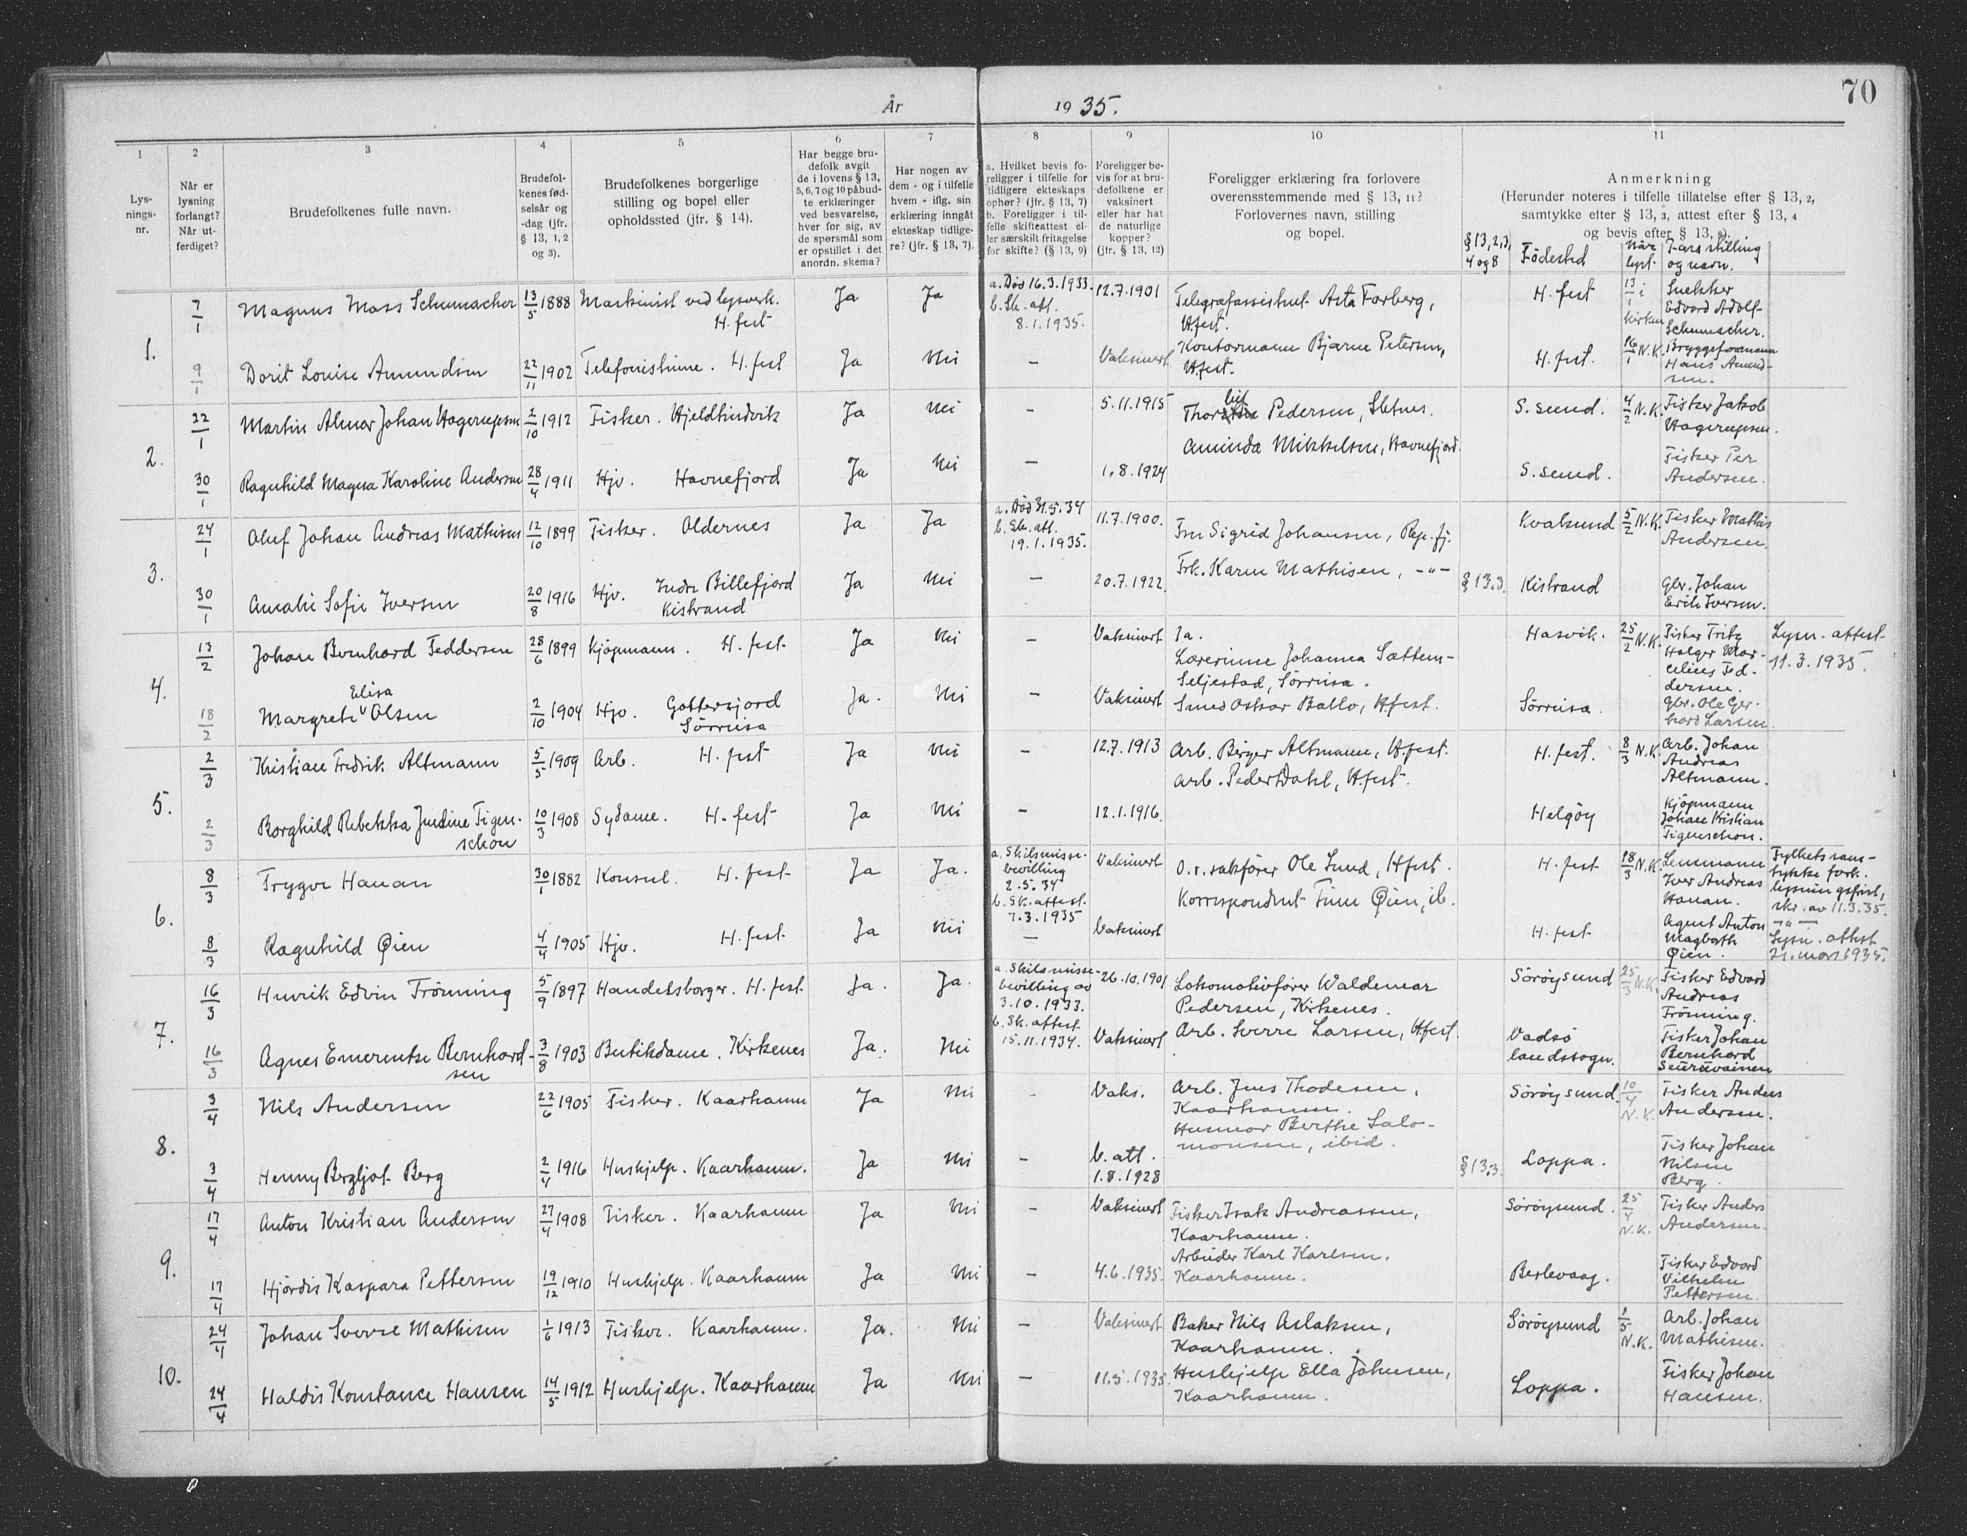 70
År 1935.
1 2 3 4 5 6 7 8 9 10 11
Lysnings-nr.
Når er lysning forlangt? Når utferdiget?
Brudefolkenes fulle navn.
Brudefolkenes fødselsår og -dag (jfr. § 13, 1, 2 og 3).
Brudefolkenes borgerlige stilling og bopel eller opholdssted (jfr. § 14).
Har begge brudefolk avgit de i lovens § 13, 5, 6, 7 og 10 påbudte erklæringer ved besvarelse, hver for sig, av de spørsmål som er opstillet i det anordn. skema?
Har nogen av dem - og i tilfelle hvem - iflg. sin erklæring inngått ekteskap tidligere? (jfr. § 13, 7).
a. Hvilket bevis foreligger i tilfelle for tidligere ekteskaps ophør? (jfr. § 13, 7) b. Foreligger i tilfelle skifteattest eller særskilt fritagelse for skifte? (§ 13, 9)
Foreligger bevis for at brudefolkene er vaksinert eller har hat de naturlige kopper? (jfr. § 13, 12)
Foreligger erklæring fra forlovere overensstemmende med § 13, 11? Forlovernes navn, stilling og bopel.
Anmerkning
(Herunder noteres i tilfelle tillatelse efter § 13, 2, samtykke efter § 13, 3, attest efter § 13, 4 og bevis efter § 13, 8).
§ 13, 2, 3, 4 og 8 Fødested Når lyst. Fars stilling og navn.
1.
7/1 Magnus Moss Schumacher 13/5 1888 Maskinist ved lysverk. H. fest Ja Ja a. Død 16.3.1933. b. Sk. att. 8.1.1935. 12.7.1901 Telegrafassistent Asta Forberg, Hfest. H. fest 13/1 i kirken Snekker Edvard Adolf Schumacher.
9/1 Dorit Louise Amundsen 22/11 1902 Telefonistinne. H. fest Ja Nei — Vaksinert Kontormann Bjarne Petersen, Hfest. H. fest. 16/1 N.K. Bryggeformann Hans Amundsen.
2.
22/1 Martin Almar Johan Hagerupsen 2/10 1912 Fisker. Hjeldtindvik Ja Nei — 5.11.1915 Pedersen, Sletnes. S. sund. 4/2 N.K. Fisker Jakob Hagerupsen.
30/1 Ragnhild Magna Karoline Andersen 28/4 1911 Hjv. Havnefjord Ja Nei — 1.8.1924 Aminda Mikkelsen, Havnefjord. S. sund. Fisker Per Andersen.
3.
24/1 Oluf Johan Andreas Mathisen 12/10 1899 Fisker. Oldernes Ja Ja a. Død 31.5.34 b. Sk. att. 19.1.1935. 11.7.1900. Fru Sigrid Johansen, Rep. fj. Kvalsund 5/2 N.K. Fisker Mathis Andersen.
30/1 Amalie Sofie Iversen 20/8 1916 Hjv. Indre Billefjord Kistrand Ja Nei — 20.7.1922. Frk. Karen Mathisen, -"- § 13.3. Kistrand Gbr. Johan Erik Iversen.
4.
13/2 Johan Bernhard Feddersen 28/6 1899 Kjøpmann. H. fest. Ja Nei — Vaksinert Ja. Lærerinne Johanna Sættem-Seljestad, Sørreisa. Hasvik. 25/2 N.K. Fisker Fritz Holger Marcelius Feddersen. Lysn. attest 11.3.1935.
18/2 Margrete Elisa Olsen 2/10 1904 Hjv. Gottersjord Sørreisa Ja. Nei — Vaksinert Smed Oskar Ballo, Hfest. Sørreisa. Gbr. Ole Gerhard Larsen.
5.
2/3 Kristian Fredrik Altmann 5/5 1909 Arb. H. fest Ja Nei — 12.7.1913 Arb. Birger Altmann, Hfest. H. fest. 8/3 N.K. Arb. Johan Andreas Altmann.
2/3 Borghild Rebekka Jensine Figenschou 10/3 1908 Sydame. H. fest Ja Nei — 12.1.1916. Arb. Peder Dahl, Hfest. Helgøy Kjøpmann Johan Kristian Figenschou.
6.
8/3 Trygve Hanan 30/1 1882 Konsul. H. fest. Ja Ja. a. Skilsmissebevilling 2.5.34 b. Sk. attest. 7.3.1935 Vaksinert O.r. sakfører Ole Lund, Hfest. H. fest 18/3 N.K. Lensmann Iver Andreas Hanan. Fylkets samtykke fork. lysningsfrist, skr. av 11.3.35.
8/3 Ragnhild Øien 4/4 1905 Hjv. H. fest. Ja Nei — Vaksinert Korrespondent Finn Øien, ib. H. fest Agent Anton Magborth Øien. —"— Lysn. attest 21. mars 1935.
7.
16/3 Henrik Edvin Trønning 5/9 1897 Handelsborger. H. fest. Ja. Ja. a. Skilsmissebevilling av 3.10.1933. b. Sk. attest 15.11.1934. 26.10.1901 Lokomotivfører Waldemar Pedersen, Kirkenes. Sørøysund 25/3 N.K. Fisker Edvard Andreas Trønning.
16/3 Agnes Emerentse Bernhardsen 3/8 1903 Butikdame. Kirkenes Ja. Nei Vaksinert Arb. Sverre Larsen, Hfest. Vadsø landssogn. Fisker Johan Bernhard Seuruvainen
8.
3/4 Nils Andersen 22/6 1905 Fisker. Kaarhamn Ja Nei - Vaks. Arb. Jens Thodesen, Kaarhamn. Sørøysund. 10/4 N.K. Fisker Anders Andersen.
3/4 Henny Bergljot Berg 2/4 1916 Hushjelp. Kaarhamn. Ja Nei — V. att. 1.8.1928 Husmor Berthe Salomonsen, ibid. § 13.3. Loppa. Fisker Johan Nilsen Berg.
9.
17/4 Anton Kristian Andersen 27/4 1908 Fisker. Kaarhamn Ja Nei — Vaksinert Fisker Isak Andreassen, Kaarhamn. Sørøysund. 25/4 N.K. Fisker Anders Andersen.
17/4 Hjørdis Kaspara Pettersen 19/12 1910 Hushjelp. Kaarhamn Ja Nei — 4.6.1935. Arbeider Karl Karlsen, Kaarhamn. Berlevaag. Fisker Edvard Vilhelm Pettersen.
10.
24/4 Johan Sverre Mathisen 1/6 1913 Fisker. Kaarhamn. Ja. Nei — Vaksinert Baker Nils Aslaksen, Kaarhamn. Sørøysund 1/5 N.K. Arb. Johan Mathisen.
24/4 Haldis Konstance Hansen 14/5 1912 Hushjelp. Kaarhamn Ja Nei — 11.5.1935. Hushjelp Ella Johnsen, Kaarhamn. Loppa. Fisker Johan Hansen.